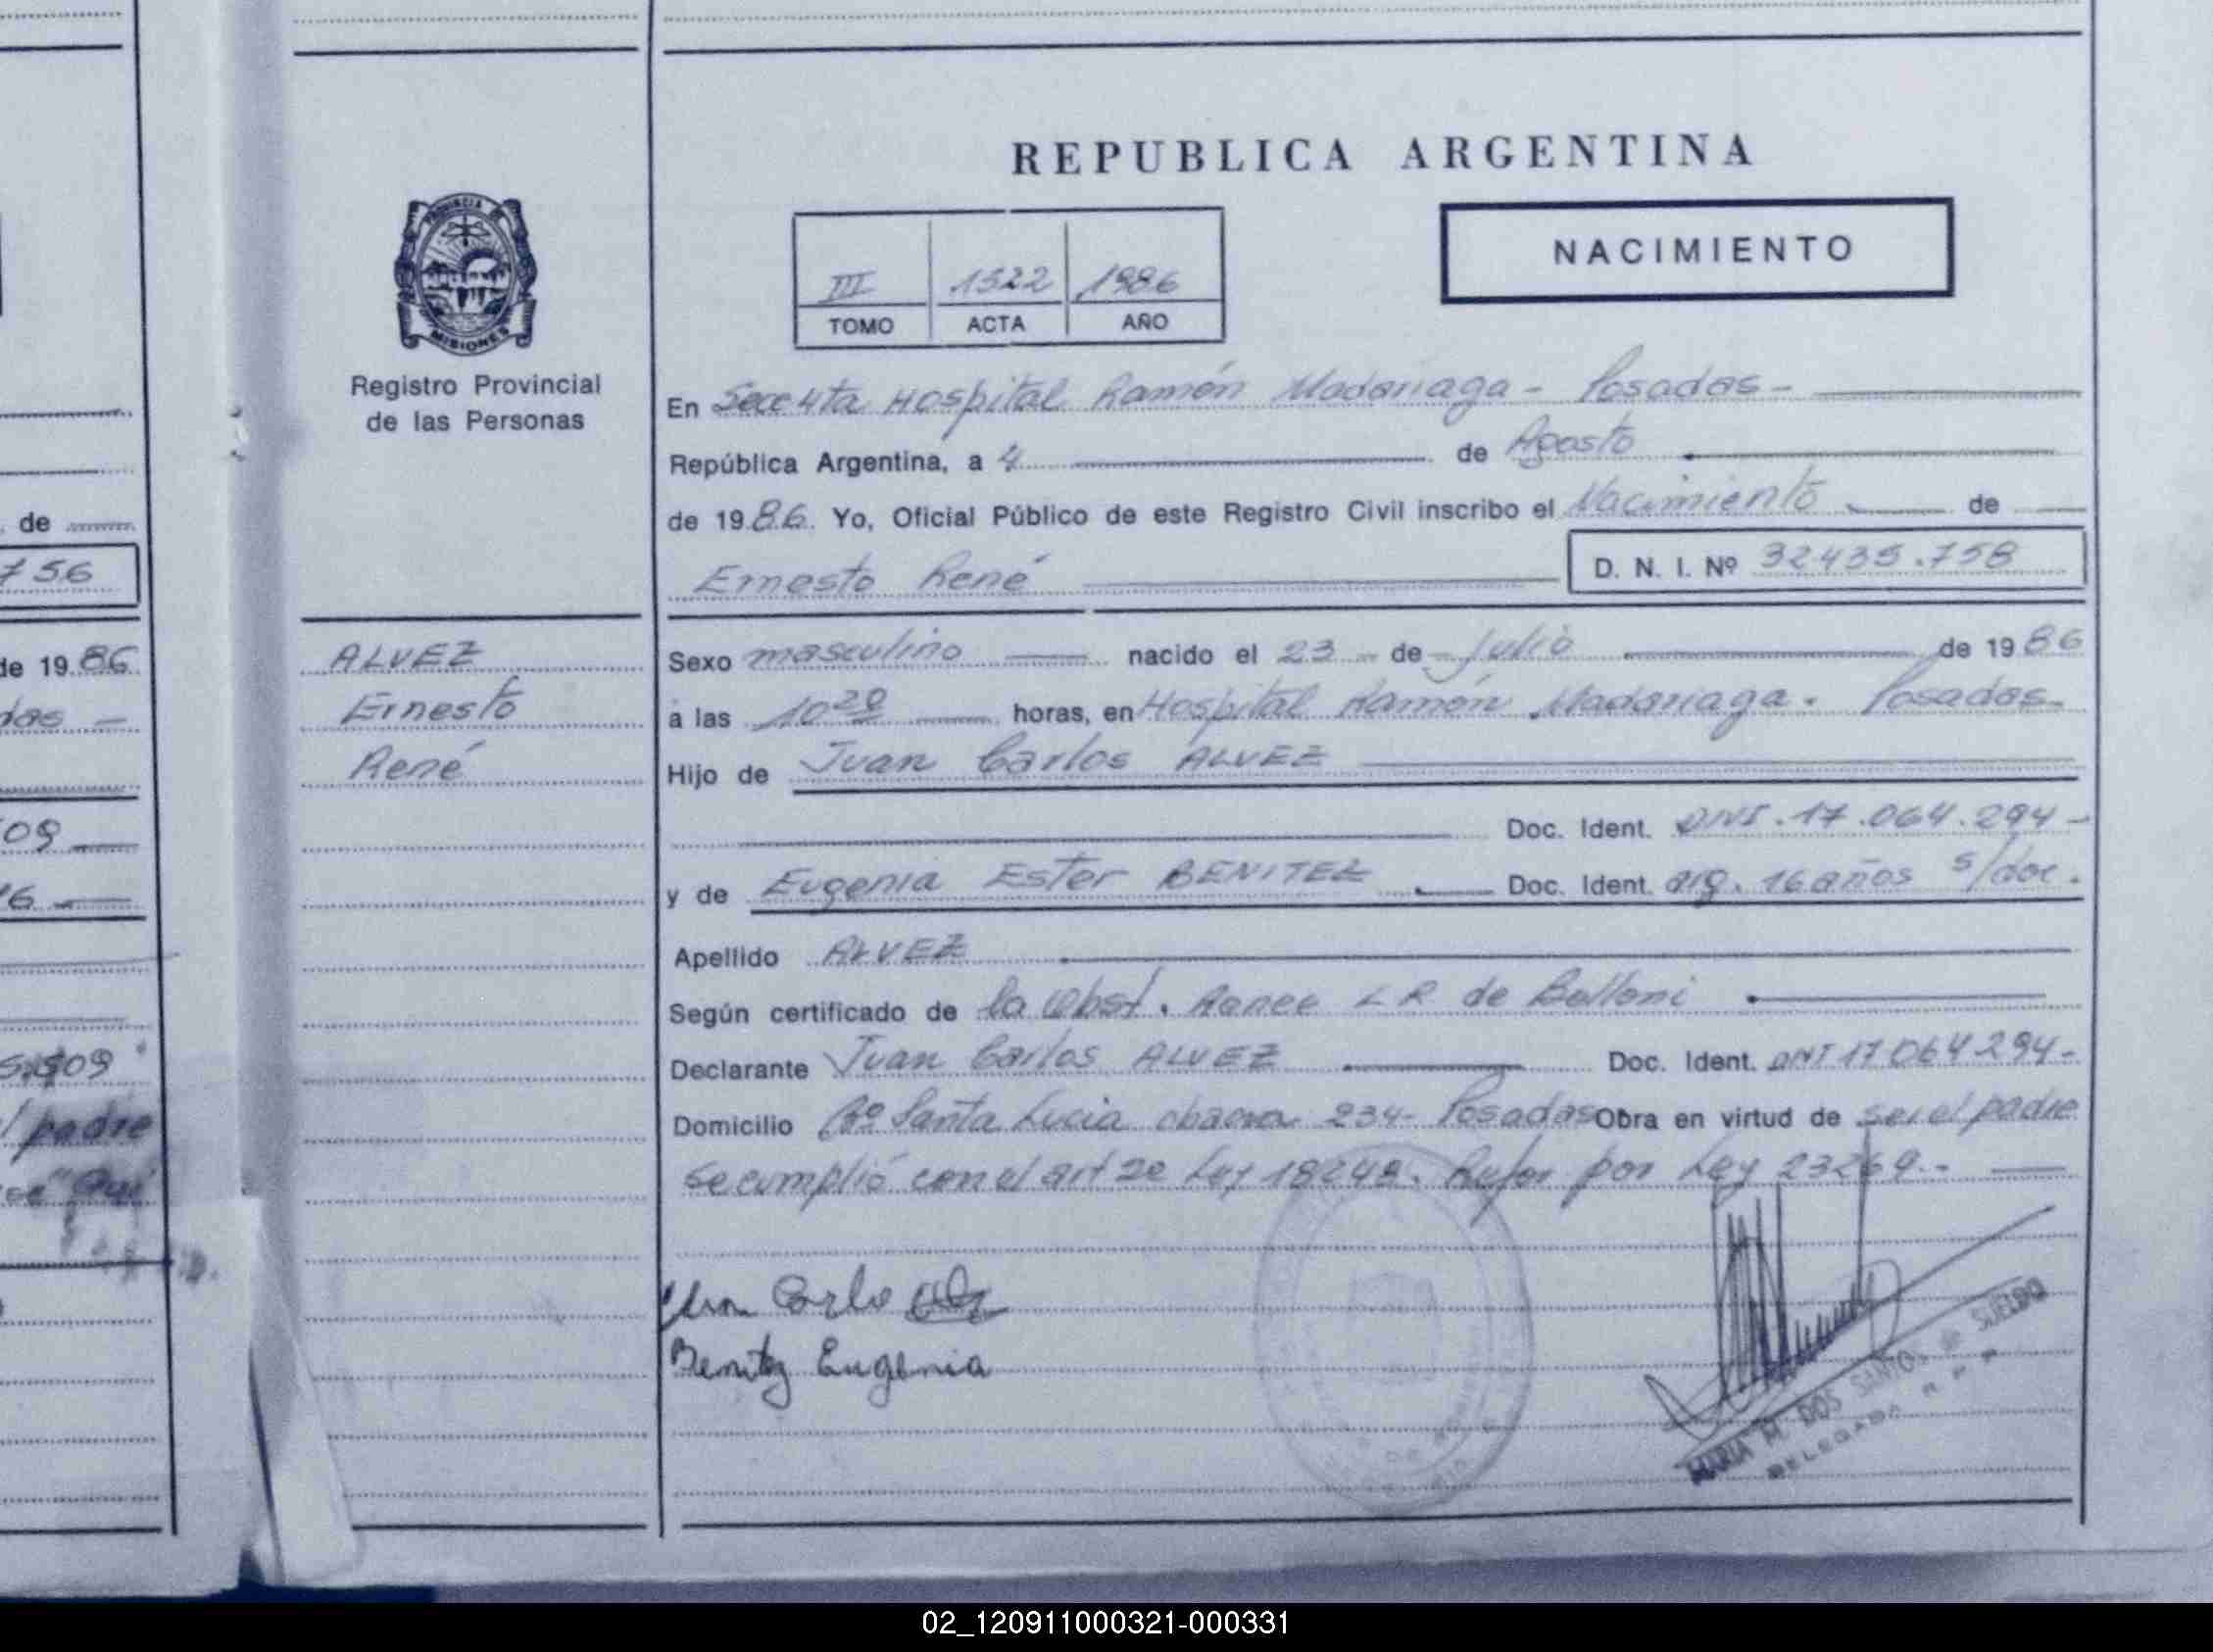 REPUBLICA ARGENTINA
NACIMIENTO
III 1522 1986
TOMO ACTA AÑO
PROVINCIA DE
MISIONES
Registro Provincial
de las Personas
En Secc 4ta Hospital Ramón Madariaga - Posadas -
República Argentina, a 4 de Agosto
de 1986. Yo, Oficial Público de este Registro Civil inscribo el Nacimiento de
Ernesto René D. N. I. Nº 32435.758
ALVEZ
Ernesto
René
Sexo masculino nacido el 23 - de - Julio de 1986
a las 10 20 horas, en Hospital Ramón Madariaga - Posadas -
Hijo de Juan Carlos ALVEZ
Doc. Ident. DNI. 17.064.294 -
y de Eugenia Ester BENITEZ Doc. Ident. arg. 16 años s/doc.
Apellido ALVEZ
Según certificado de la Obst. Renee L R de Belloni
Declarante Juan Carlos ALVEZ Doc. Ident. DNI 17 064 294 -
Domicilio Bº Santa Lucia chacra 234 - Posadas Obra en virtud de ser el padre
Se cumplió con el art 2º Ley 18248. Refor por Ley 23269. -
Juan Carlo
Benitez Eugenia
MARIA M. DOS SANTOS de SUELDO
DELEGADA R P P
de
756
de 1986
das -
09
16
509
padre
02_120911000321-000331